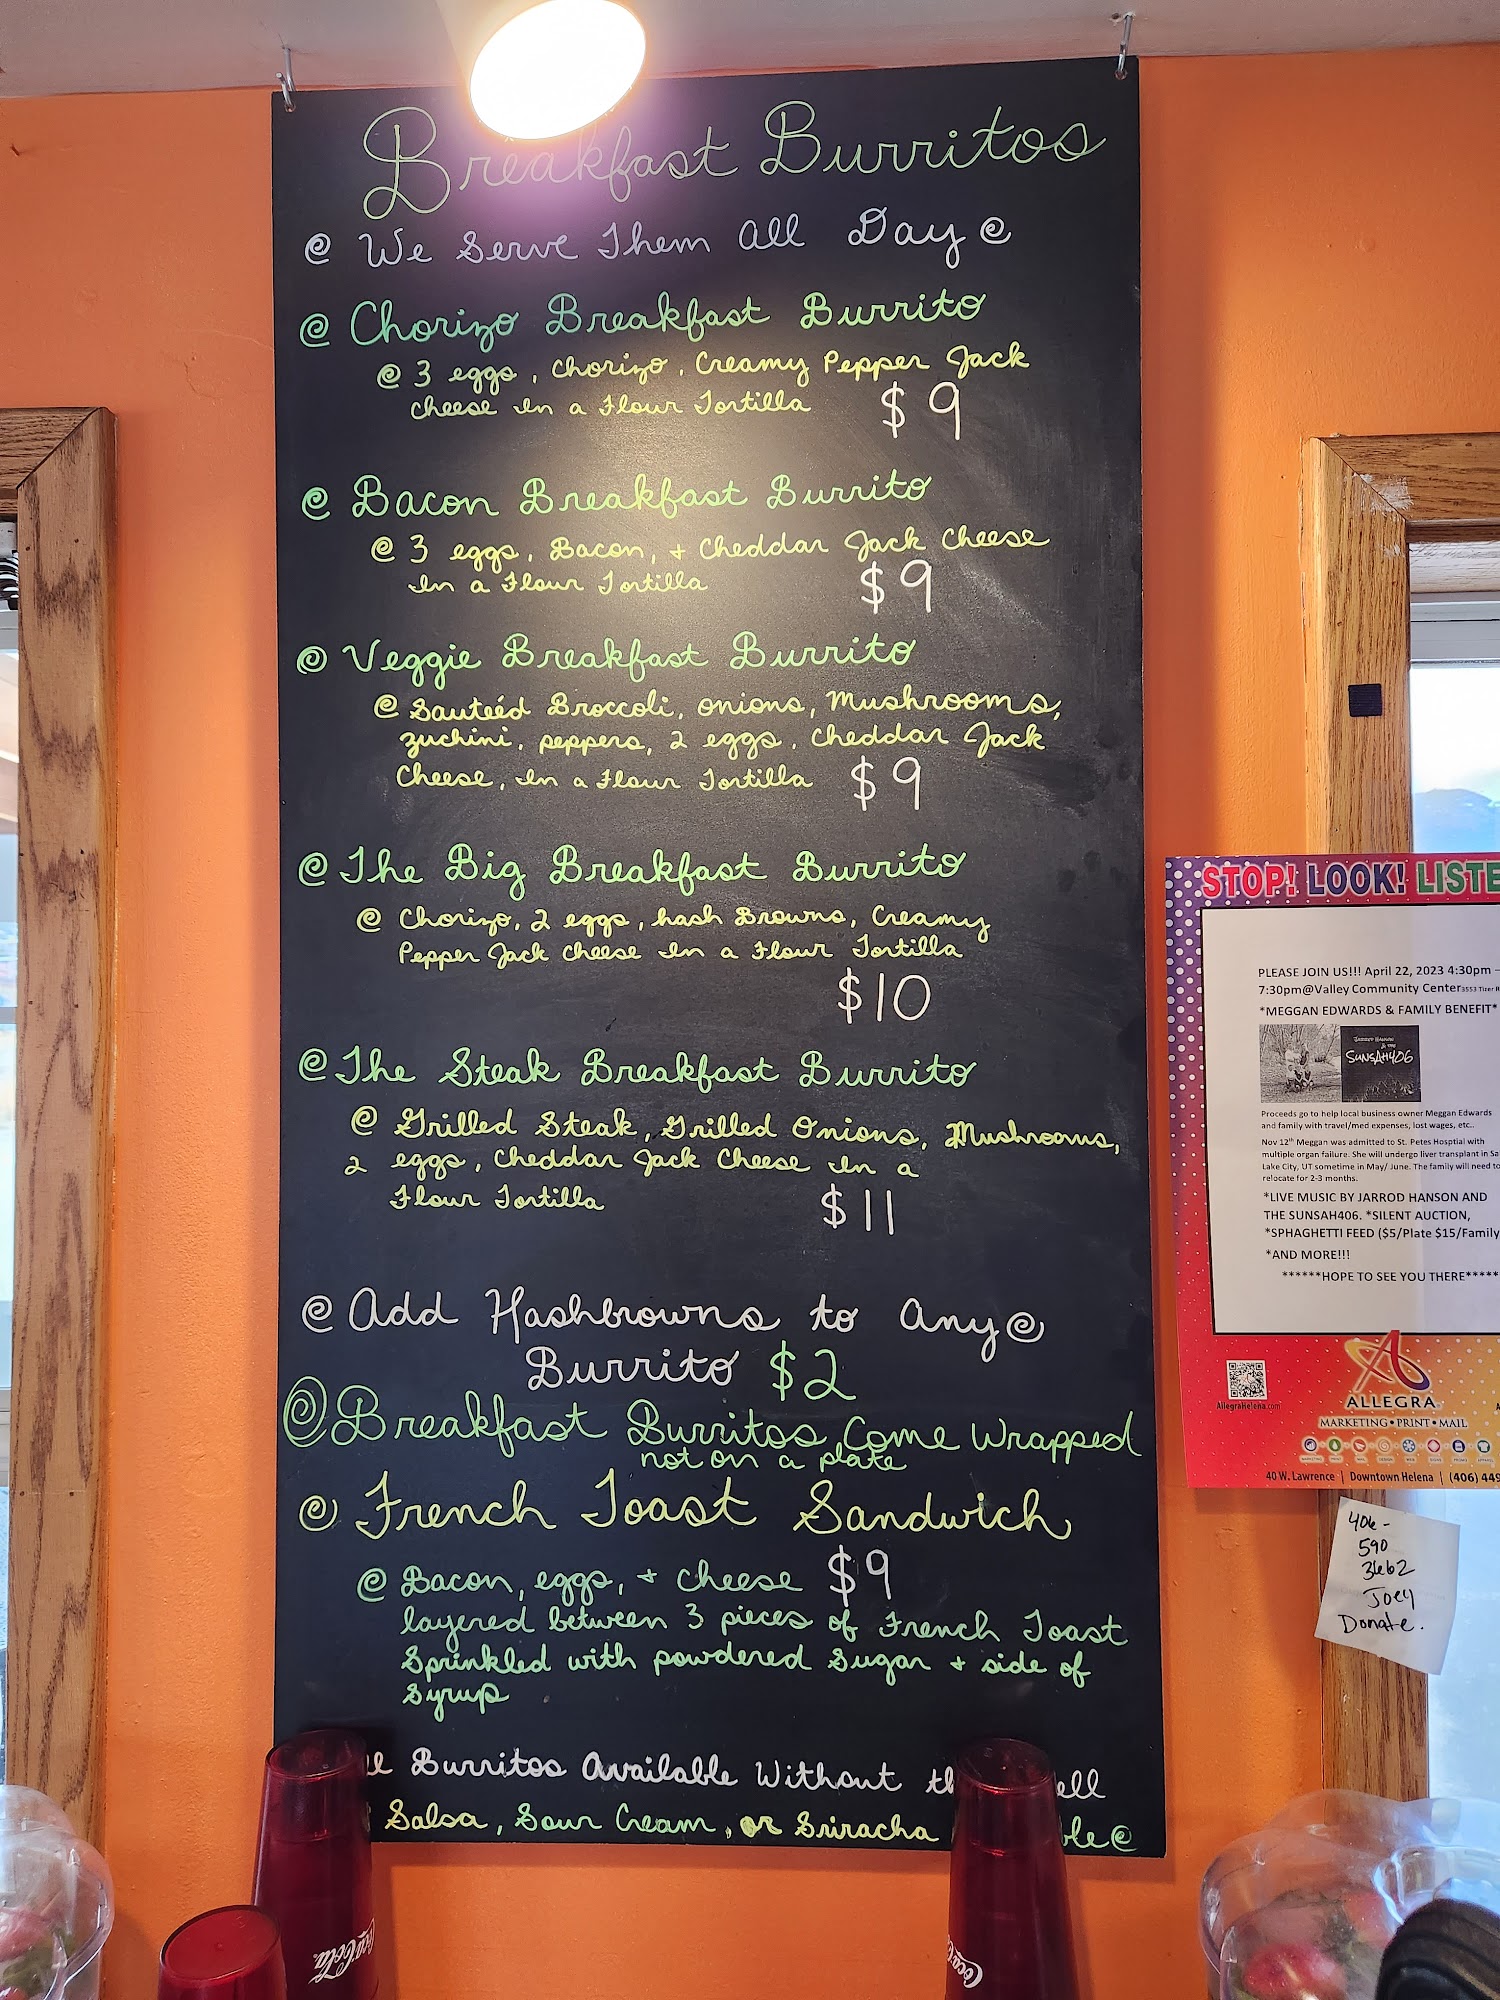 Breakfast Burritos
We Serve Them All Day
Chorizo Breakfast Burrito
3 eggs, Chorizo, Creamy Pepper Jack
Cheese In a Flour Tortilla $9
Bacon Breakfast Burrito
3 eggs, Bacon, + Cheddar Jack Cheese
In a Flour Tortilla $9
Veggie Breakfast Burrito
Sauteéd Broccoli, onions, Mushrooms,
zuchini, peppers, 2 eggs, Cheddar Jack
Cheese, In a Flour Tortilla $9
The Big Breakfast Burrito
Chorizo, 2 eggs, hash Browns, Creamy
Pepper Jack Cheese In a Flour Tortilla
$10
The Steak Breakfast Burrito
Grilled Steak, Grilled Onions, Mushrooms,
2 eggs, Cheddar Jack Cheese In a
Flour Tortilla $11
Add Hashbrowns to Any
Burrito $2
Breakfast Burritos Come Wrapped
not on a plate
French Toast Sandwich
Bacon, eggs, + cheese $9
layered between 3 pieces of French Toast
Sprinkled with powdered Sugar + side of
Syrup
Burritos Available Without
Salsa, Sour Cream, or Sriracha
Coca-Cola
Coca
STOP! LOOK! LISTE
PLEASE JOIN US!!! April 22, 2023 4:30pm –
7:30pm@Valley Community Center 3553 Tizer R
*MEGGAN EDWARDS & FAMILY BENEFIT*
JARROD HANSON
& THE
SUNSAH406
Proceeds go to help local business owner Meggan Edwards
and family with travel/med expenses, lost wages, etc..
Nov 12th Meggan was admitted to St. Petes Hosptial with
multiple organ failure. She will undergo liver transplant in Sa
Lake City, UT sometime in May/ June. The family will need to
relocate for 2-3 months.
*LIVE MUSIC BY JARROD HANSON AND
THE SUNSAH406. *SILENT AUCTION,
*SPHAGHETTI FEED ($5/Plate $15/Family
*AND MORE!!!
******HOPE TO SEE YOU THERE*****
AllegraHelena.com
ALLEGRA
MARKETING • PRINT • MAIL
40 W. Lawrence | Downtown Helena | (406) 449
406-
590
3662
Joey
Donate.